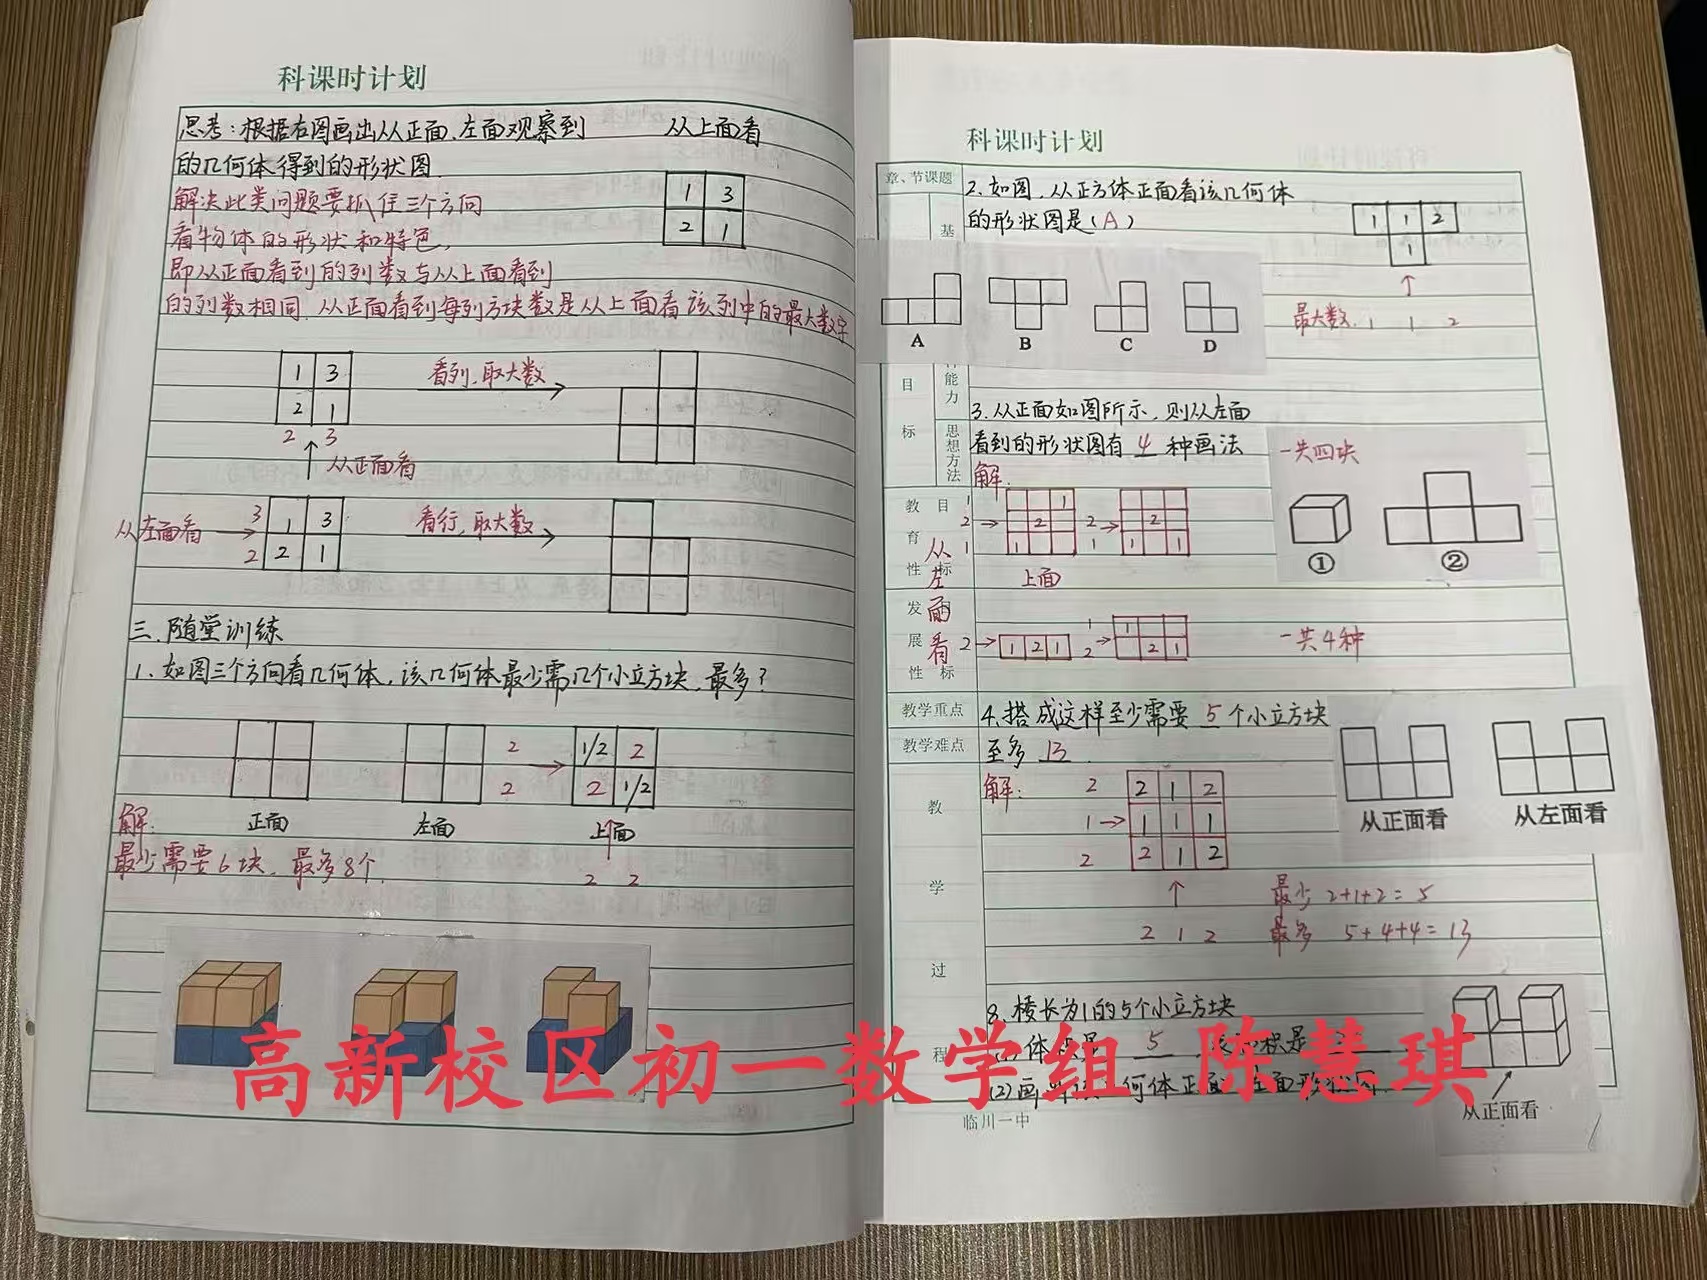 科课时计划
思考：根据右图画出从正面、左面观察到 从上面看
的几何体得到的形状图.
解决此类问题要抓住三个方向
看物体的形状和特色,
即从正面看到的列数与从上面看到
的列数相同.从正面看到每列方块数是从上面看该列中的最大数字
1 3
2 1
1 3
2 1
2 3
看列,取大数
从正面看
从左面看
3
2
1 3
2 1
看行,取大数
三.随堂训练
1.如图三个方向看几何体,该几何体最少需几个小立方块,最多?
2
2
1/2 2
2 1/2
解:
正面 左面 上面
2 2
最少需要6块,最多8个.
科课时计划
章、节课题
2.如图,从正方体正面看该几何体
的形状图是(A)
1 1 2
1
最大数. 1 1 2
基
A B C D
能力
目
标
思想方法
3.从正面如图所示,则从左面
看到的形状图有 4 种画法
解.
一共四块
① ②
教 目
育
性 标
1
2
1
1
2
1
2
1
2
1 1
上面
从左面看
发 目
展
性 标
2
1 2 1
1
2
1
2 1
一共4种
教学重点
教学难点
4.搭成这样至少需要 5 个小立方块
至多 13 .
从正面看 从左面看
解:
2
1
2
2 1 2
1 1 1
2 1 2
2 1 2
最少 2+1+2=5
最多 5+4+4=13
教
学
过
程
8.棱长为1的5个小立方块
5
从正面看
临川一中
高新校区初一数学组 陈慧琪